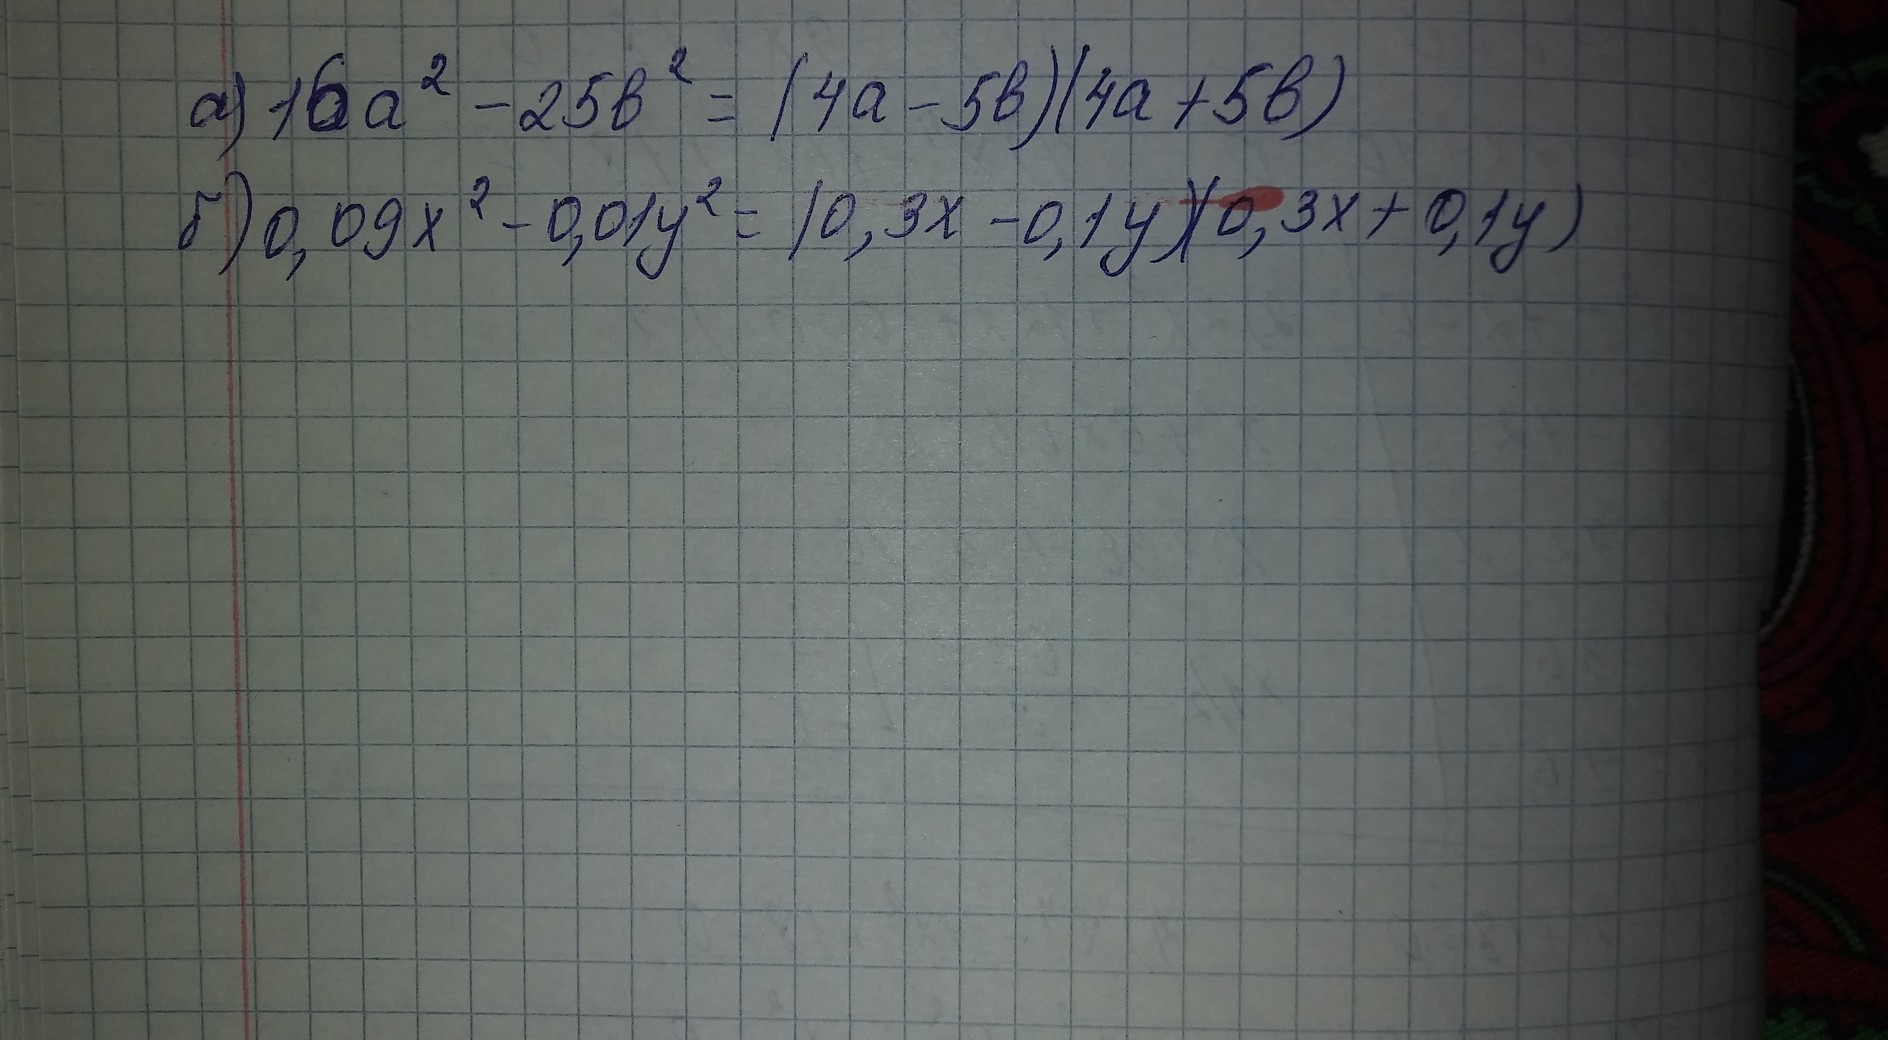 а) 16a² - 25b² = (4a - 5b)(4a + 5b)
б) 0,09x² - 0,01y² = (0,3x - 0,1y)(0,3x + 0,1y)